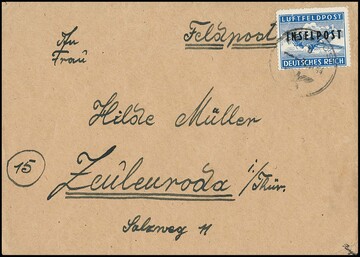 Feldpost
LUFTFELDPOST
INSELPOST
DEUTSCHES REICH
An
Frau
Hilde Müller
15
Zeulenroda i/Thür.
Salzweg 11